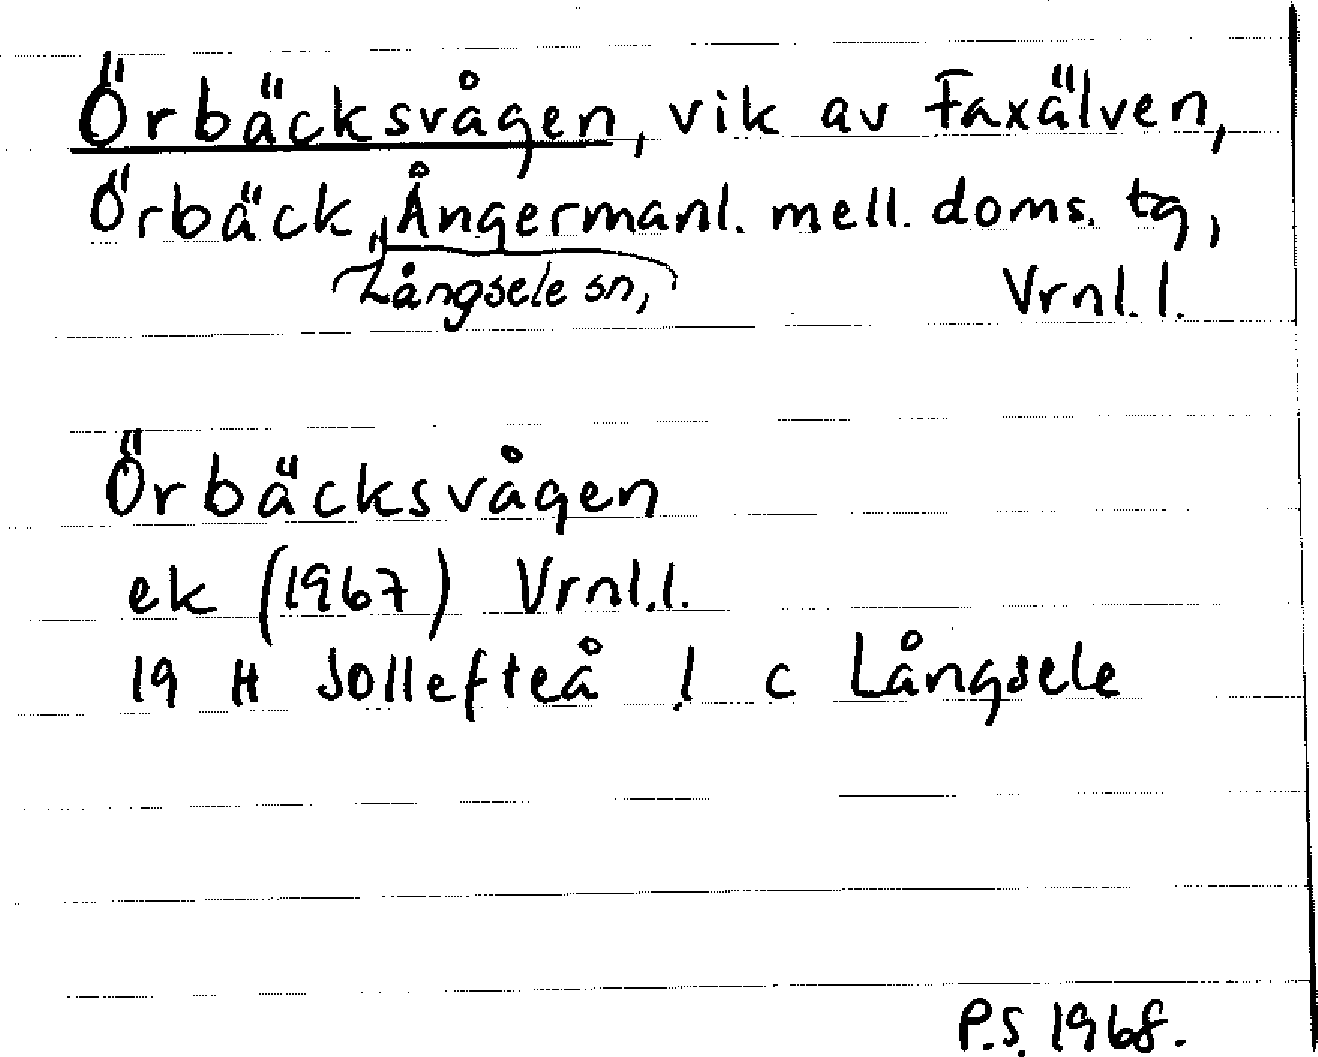 Örbäcksvågen, vik av Faxälven,
Örbäck, Ångermanl. mell. doms. tg,
Långsele sn,
Vrnl. l.
Örbäcksvågen
ek (1967) Vrnl.l.
19 H Sollefteå l c Långsele
P.S. 1968.